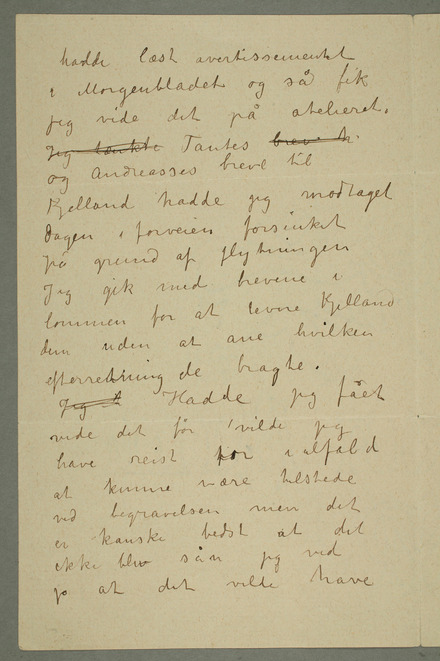 hadde læst avertissementet
i Morgenbladet og så fik
jeg vide det på atelieret.
Jeg tænkte Tantes brev t.
og Andreasses breve til
Kjelland hadde jeg modtaget
dagen i forveien forsinket
på grund af flytningen
Jeg gik med brevene i
lommen for at levere Kjelland
dem uden at ane hvilken
efterretning de bragte.
Jeg Hadde jeg fået
vide det før vilde jeg
have reist for ialfald
at kunne være tilstede
ved begravelsen men det
er kanske bedst at det
ikke blev sån jeg ved
jo at det vilde have